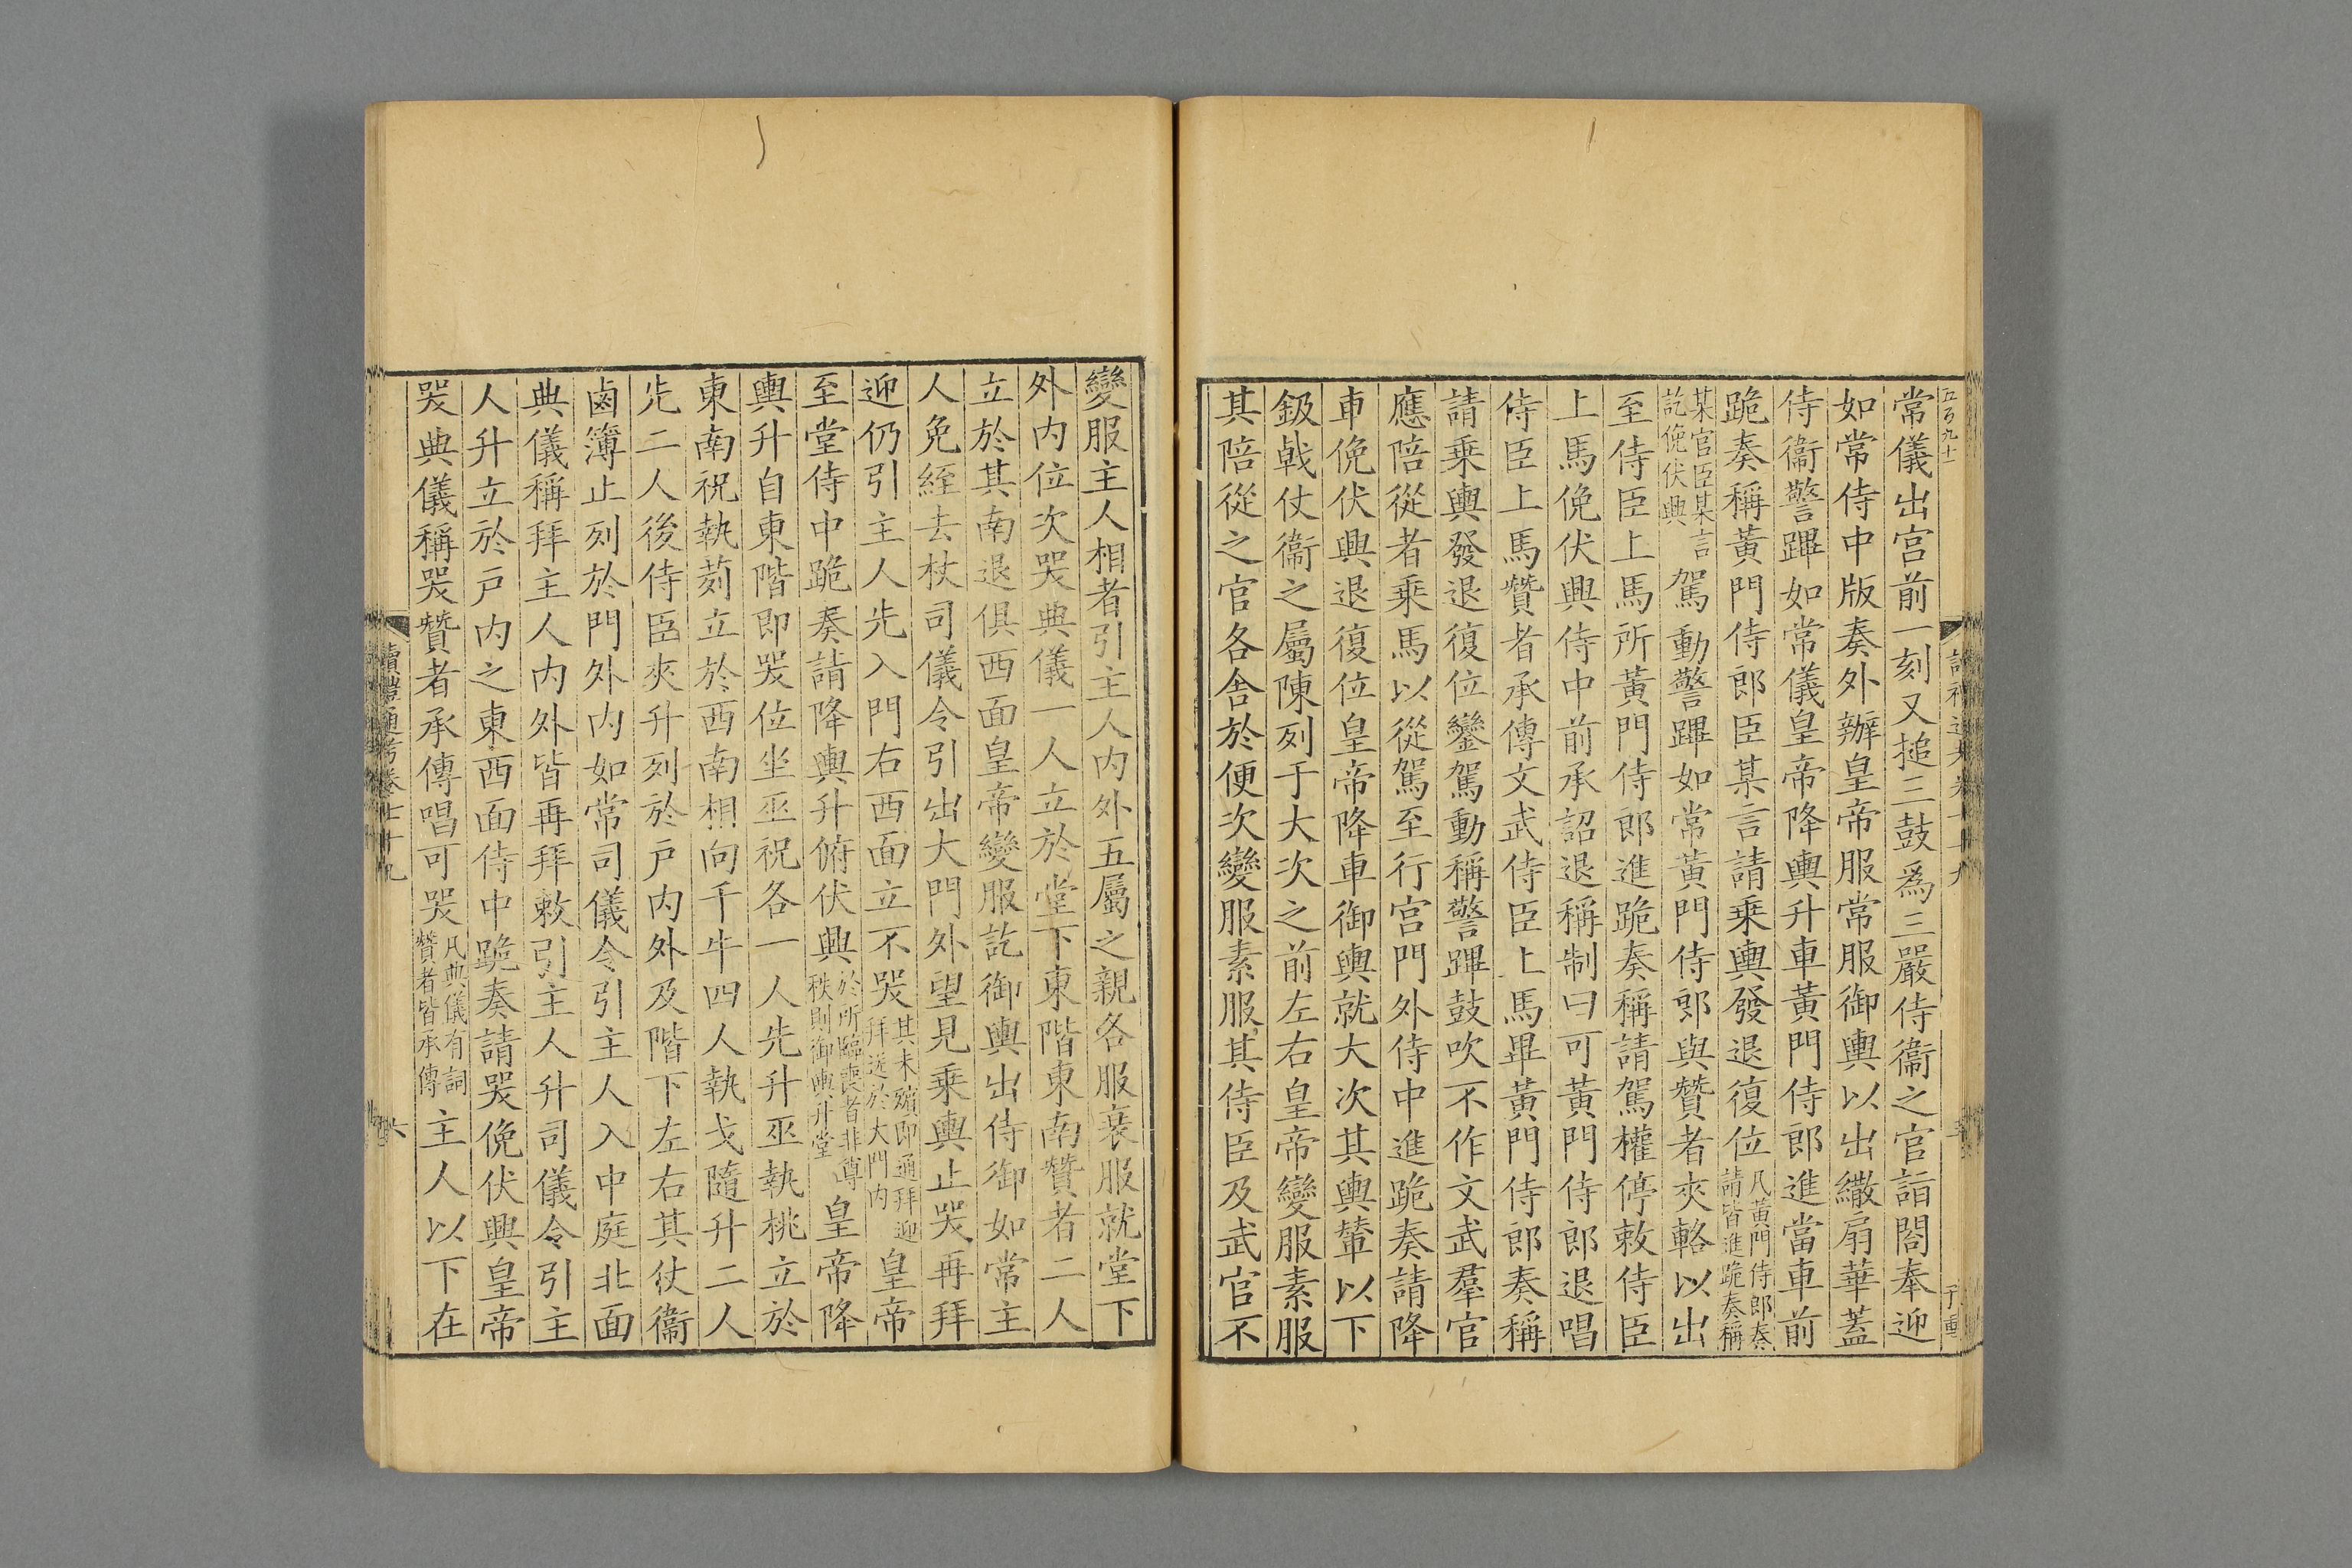 五百九十一
常儀出宮前一刻又搥三鼓爲三嚴侍衞之官詣閤奉迎
如常侍中版奏外辦皇帝服常服御輿以出繖扇華蓋
侍衞警蹕如常儀皇帝降輿升車黃門侍郎進當車前
跪奏稱黃門侍郎臣某言請乗輿發退復位凡黃門侍郎奏請皆進跪奏稱
某官臣某言訖俛伏興駕動警蹕如常黃門侍郎與贊者夾輅以出
至侍臣上馬所黃門侍郎進跪奏稱請駕權停敕侍臣
上馬俛伏興侍中前承詔退稱制曰可黃門侍郎退唱
侍臣上馬贊者承傳文武侍臣上馬畢黃門侍郎奏稱
請乗輿發退復位鑾駕動稱警蹕鼓吹不作文武羣官
應陪從者乗馬以從駕至行宮門外侍中進跪奏請降
車俛伏興退復位皇帝降車御輿就大次其輿輦以下
鈒戟仗衞之屬陳列于大次之前左右皇帝變服素服
其陪從之官各舍於便次變服素服其侍臣及武官不
變服主人相者引主人内外五屬之親各服衰服就堂下
外内位次哭典儀一人立於堂下東階東南贊者二人
立於其南退俱西面皇帝變服訖御輿出侍御如常主
人免絰去杖司儀令引出大門外望見乗輿止哭再拜
迎仍引主人先入門右西面立不哭其未殯即通拜迎拜送於大門内皇帝
至堂侍中跪奏請降輿升俯伏興於所臨喪者非尊秩則御輿升堂皇帝降
輿升自東階即哭位坐巫祝各一人先升巫執桃立於
東南祝執茢立於西南相向千牛四人執戈隨升二人
先二人後侍臣夾升列於戶内外及階下左右其仗衞
鹵簿止列於門外内如常司儀令引主人入中庭北面
典儀稱拜主人内外皆再拜敕引主人升司儀令引主
人升立於戶内之東西面侍中跪奏請哭俛伏興皇帝
哭典儀稱哭贊者承傳唱可哭凡典儀有詞贊者皆承傳主人以下在
讀禮通考卷七十九
六